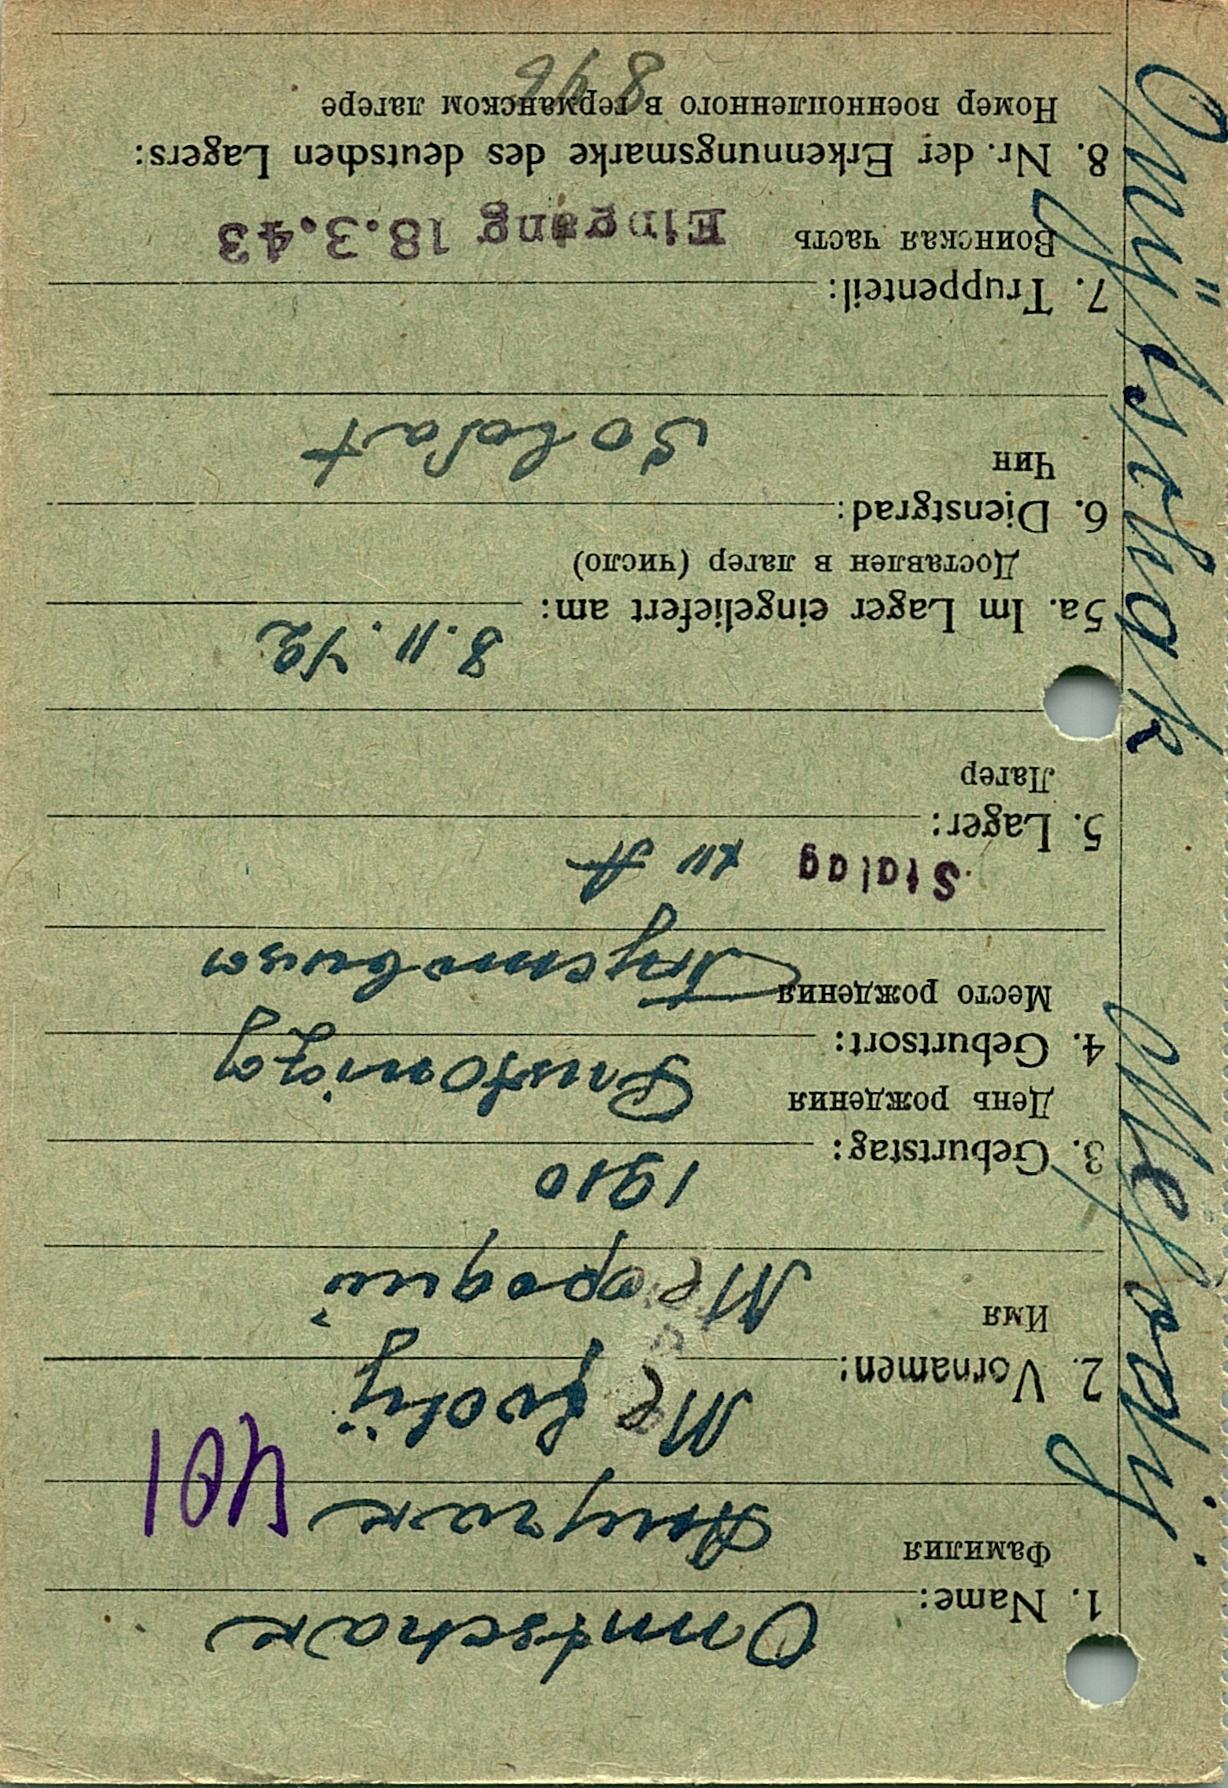 Omtschak
1. Name:
Фамилия
401
Mefodij
2. Vornamen:
Имя
Мефодий
1910
3. Geburtstag:
День рождения
4. Geburtsort:
Место рождения
Stalag XII A
5. Lager:
Лагер
8.11.42
5a. Im Lager eingeliefert am:
Доставлен в лагер (число)
6. Dienstgrad:
Чин
Soldat
7. Truppenteil:
Воинская часть
Eingang 18.3.43
8. Nr. der Erkennungsmarke des deutschen Lagers:
Номер военнопленного в германском лагере
Mefodij